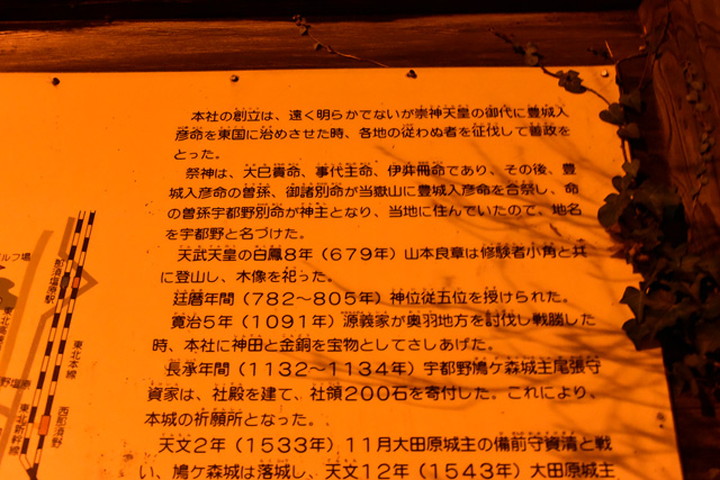 本社の創立は、遠く明らかでないが崇神天皇の御代に豊城入
彦命を東国に治めさせた時、各地の従わぬ者を征伐して善政を
とった。
祭神は、大巳貴命、事代主命、伊弉冊命であり、その後、豊
城入彦命の曽孫、御諸別命が当嶽山に豊城入彦命を合祭し、命
の曽孫宇都野別命が神主となり、当地に住んでいたので、地名
を宇都野と名づけた。
天武天皇の白鳳8年(679年)山本良章は修験者小角と共
に登山し、木像を祀った。
廷暦年間(782〜805年)神位従五位を授けられた。
寛治5年(1091年)源義家が奥羽地方を討伐し戦勝した
時、本社に神田と金銅を宝物としてさしあげた。
長承年間(1132〜1134年)宇都野鳩ケ森城主尾張守
資家は、社殿を建て、社領200石を寄付した。これにより、
本城の祈願所となった。
天文2年(1533年)11月大田原城主の備前守資清と戦
い、鳩ケ森城は落城し、天文12年(1543年)大田原城主
ルフ場
那須塩原駅
東北本線
野塩原
西那須野
東北新幹線